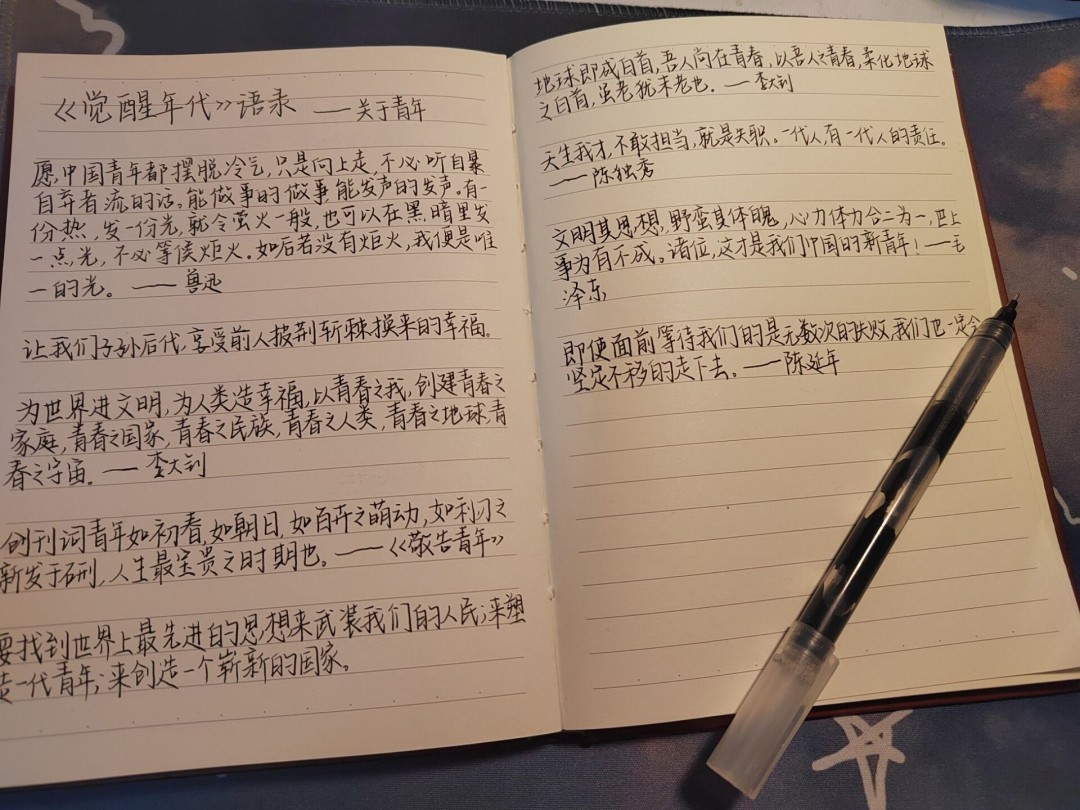 《觉醒年代》语录 ——关于青年
愿中国青年都摆脱冷气,只是向上走,不必听自暴
自弃者流的话。能做事的做事能发声的发声。有一
份热,发一份光,就令萤火一般,也可以在黑暗里发
一点光,不必等候炬火。如后若没有炬火,我便是唯
一的光。——鲁迅
让我们子孙后代,享受前人披荆斩棘换来的幸福。
为世界进文明,为人类造幸福,以青春之我,创建青春之
家庭,青春之国家,青春之民族,青春之人类,青春之地球,青
春之宇宙。——李大钊
创刊词青年如初春,如朝日,如百卉之萌动,如利刃之
新发于硎,人生最宝贵之时期也。——《敬告青年》
要找到世界上最先进的思想来武装我们的人民;来塑
造一代青年;来创造一个崭新的国家。
地球即成白首,吾人尚在青春,以吾人之青春,柔化地球
之白首,虽老犹未老也。——李大钊
天生我才,不敢担当,就是失职。一代人有一代人的责任。
——陈独秀
文明其思想,野蛮其体魄,心力体力合二为一,世上
事为有不成。诸位,这才是我们中国的新青年!——毛
泽东
即使面前等待我们的是无数次的失败,我们也一定会
坚定不移的走下去。——陈延年